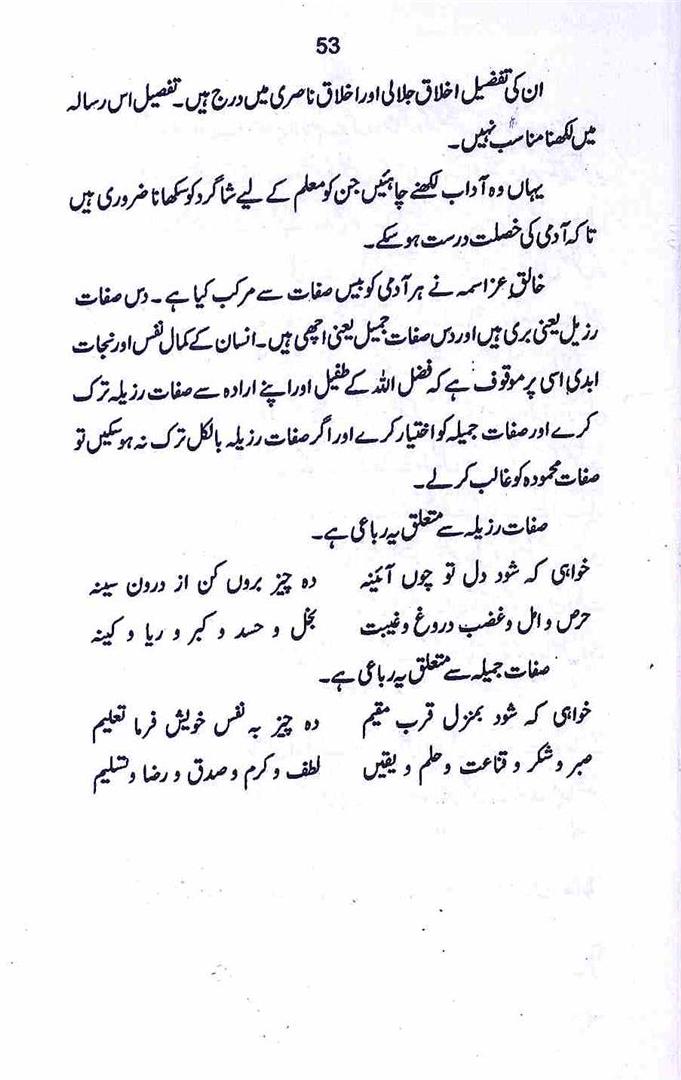 53
ان کی تفضیل اخلاق جلالی اور اخلاق ناصری میں درج ہیں۔ تفصیل اس رسالہ
میں لکھنا مناسب نہیں۔
یہاں وہ آداب لکھنے چاہئیں جن کو معلم کے لیے شاگرد کو سکھانا ضروری ہیں
تاکہ آدمی کی خصلت درست ہو سکے۔
خالقِ عز اسمہ نے ہر آدمی کو بیس صفات سے مرکب کیا ہے۔ دس صفات
رزیل یعنی بری ہیں اور دس صفات جمیل یعنی اچھی ہیں۔ انسان کے کمال نفس اور نجات
ابدی اسی پر موقوف ہے کہ فضل اللہ کے طفیل اور اپنے ارادہ سے صفات رزیلہ ترک
کرے اور صفات جمیلہ کو اختیار کرے اور اگر صفات رزیلہ بالکل ترک نہ ہو سکیں تو
صفات محمودہ کو غالب کر لے۔
صفات رزیلہ سے متعلق یہ رباعی ہے۔
خواہی کہ شود دل تو چوں آئینہ دہ چیز بروں کن از درون سینہ
حرص و امل و غضب دروغ و غیبت بخل و حسد و کبر و ریا و کینہ
صفات جمیلہ سے متعلق یہ رباعی ہے۔
خواہی کہ شود بمنزل قرب مقیم دہ چیز بہ نفس خویش فرما تعلیم
صبر و شکر و قناعت و حلم و یقیں لطف و کرم و صدق و رضا و تسلیم